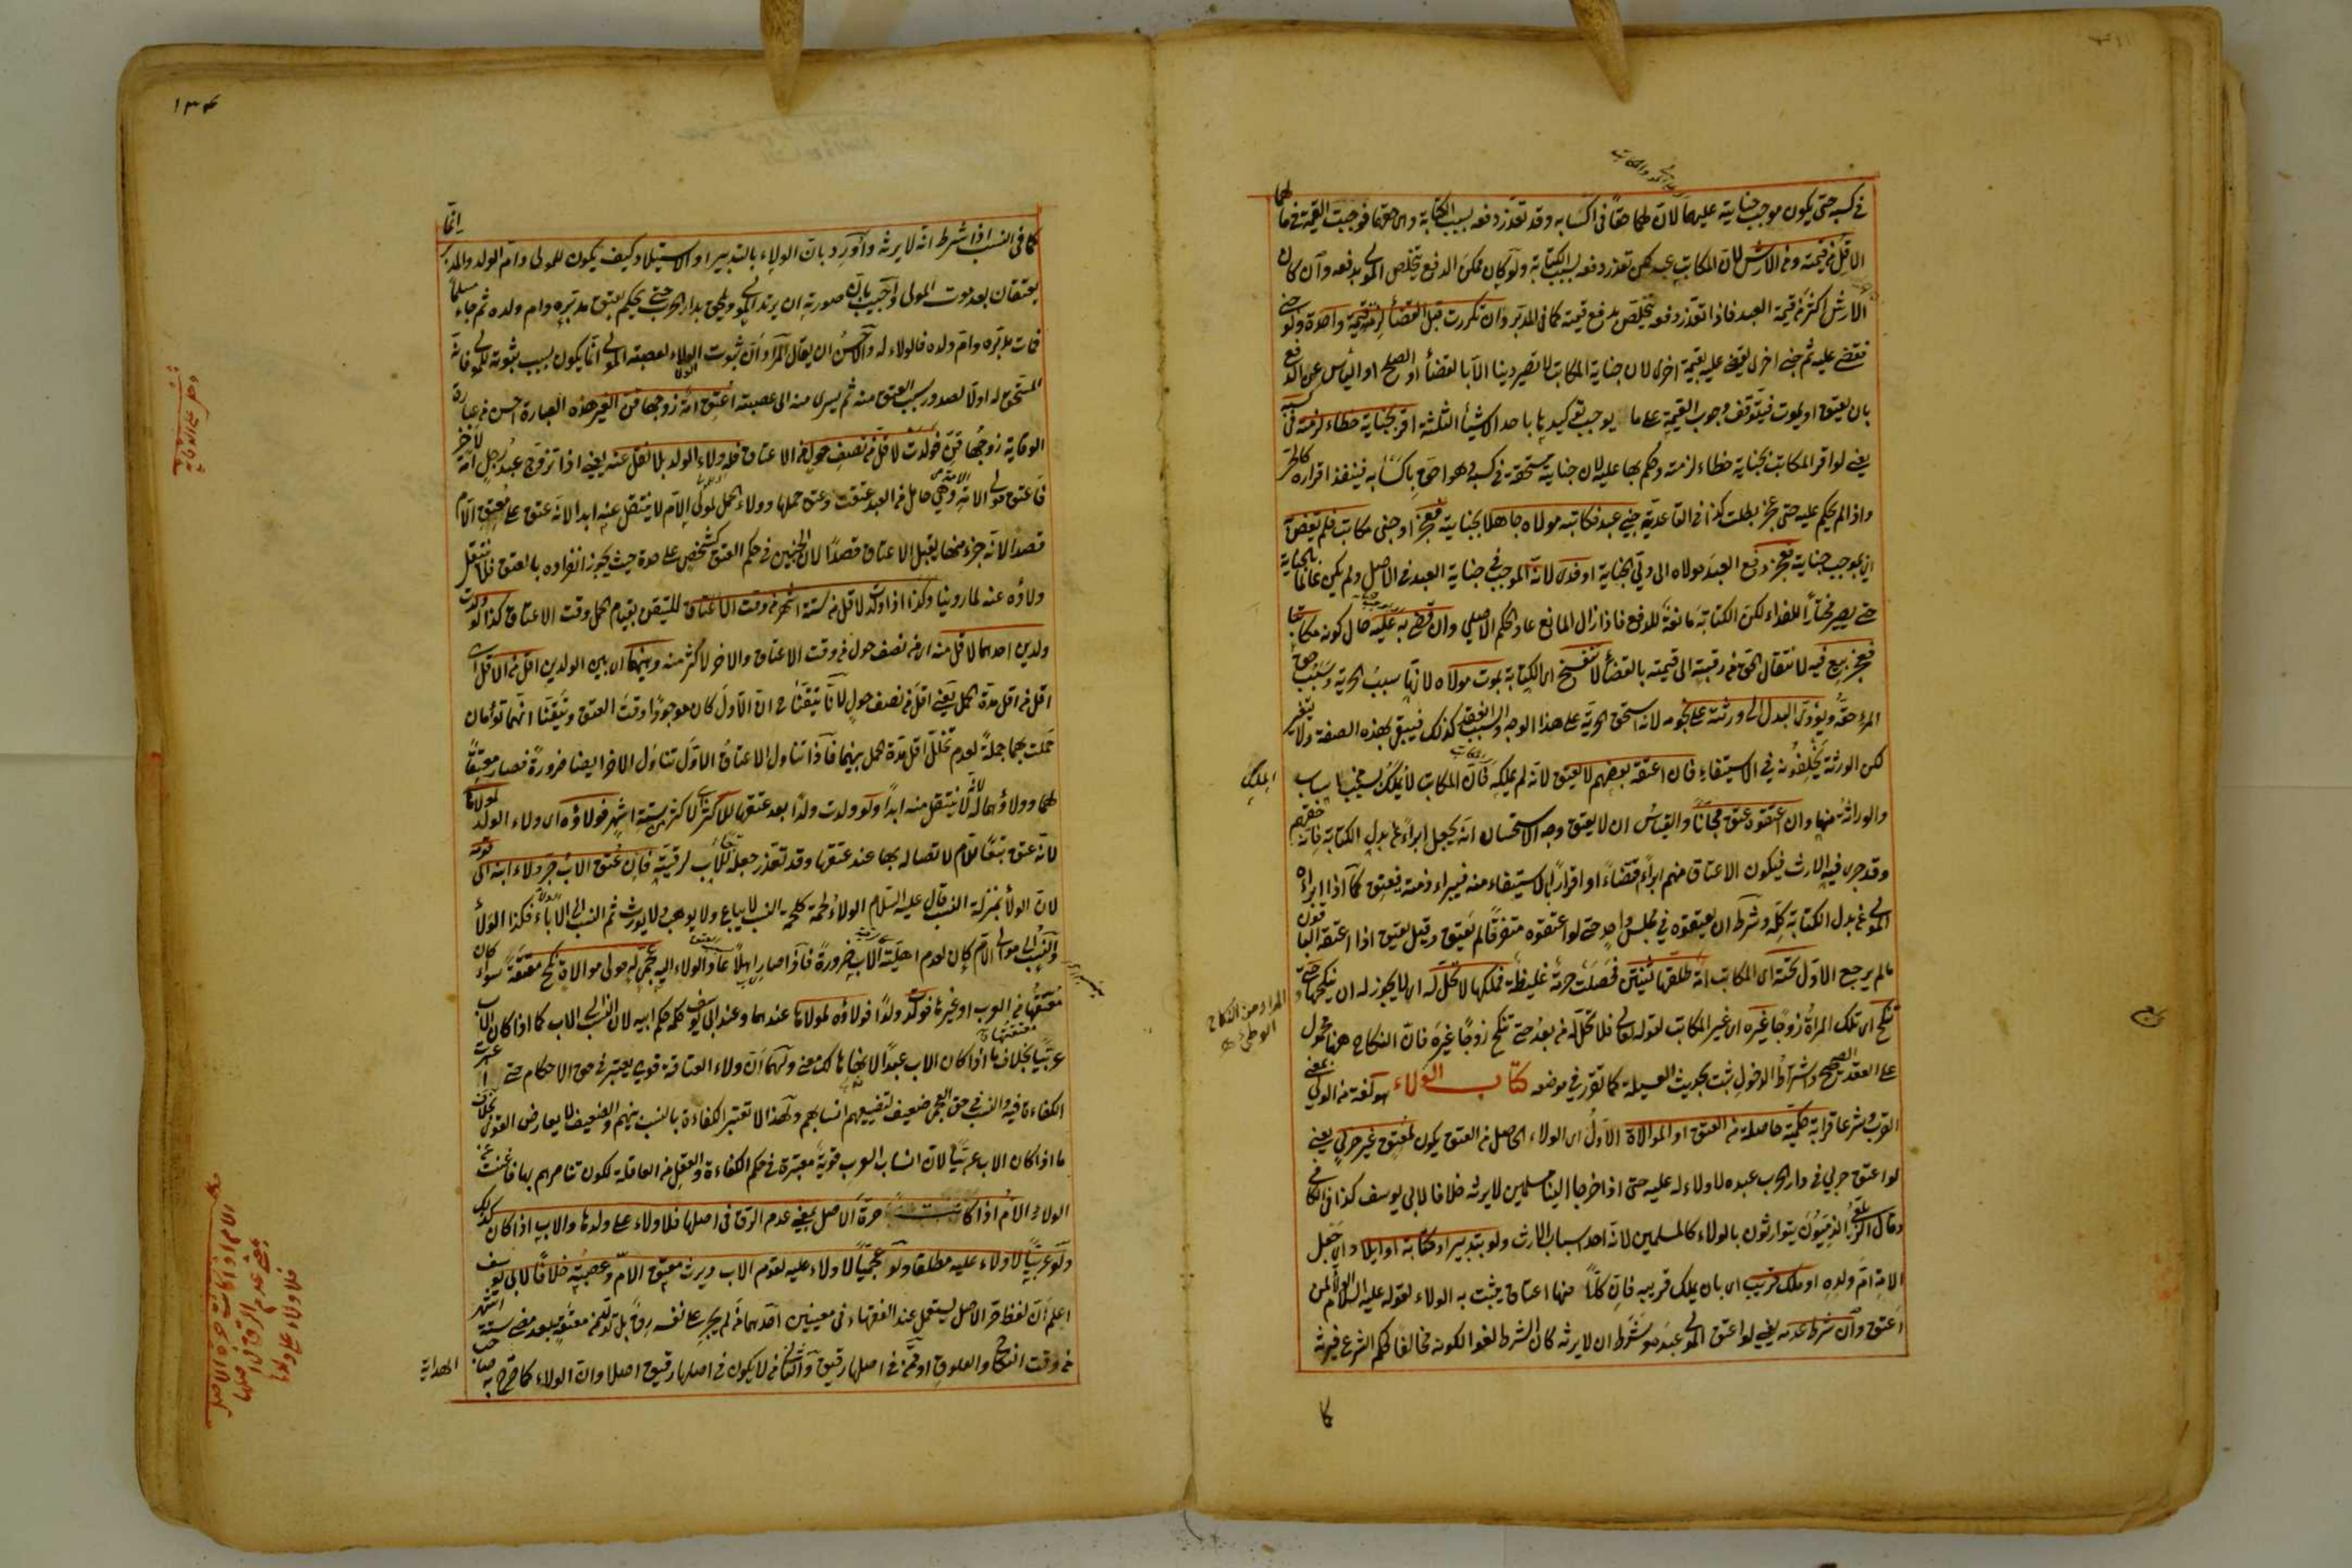 في كسبه حتى يكون موجب جناية عليهما لان لهما حقا في اكسابه وقد تعذر دفعه بسبب الكتابة وهى حقهما فوجبت القيمة فيها
الاقل من قيمته ومن الارش لان المكاتب عبد لكن تعذر دفعه بسبب الكتابة ولو كان ممكن الدفع يتخلص المولى بدفعه وان كان
الارش اكثر من قيمة العبد فاذا تعذر دفعه يتخلص بدفع قيمته كما في المدبر وان تكررت قبل القضأ لزمه قيمة واحدة ولو جنى
فقضى عليه ثم جنى اخرى يقضى عليه بقيمة اخرى لان جناية المكاتب لا تصير دينا الا بالقضأ او الصلح او اليأس عن الدفع
بان يعتق او يموت فيتوقف وجوب القيمة على ما يوجب توكيدها باحد الاشيأ الثلثة اقر بجناية خطاء لزمته في كسبه
يعنى لو اقر المكاتب بجناية خطاء لزمته وحكم بها عليه لان جناية مستحقة في كسبه وهو احق باكسابه فينفذ اقراره كالحر
واذا لم يحكم عليه حتى عجز بطلت كذا في القاعدية جنى عبد فكاتبه مولاه جاهلا بجنايته فعجز او جنى مكاتب فلم يقض
اى بموجب جناية فعجز دفع العبد مولاه الى ولي الجناية او فدى لانه الموجب في جناية العبد في الاصل ولم يكن عالما بالجناية
حتى يصير مختارا للفداء لكن الكتابة مانعة للدفع فاذا زال المانع عاد الحكم الاصلي وان قضى به عليه حال كونه مكاتبا
فعجز بيع فيه لانتقال الحق من رقبته الى قيمته بالقضأ لا تنفسخ اى الكتابة بموت مولاه لانها سبب الحرية وسبب حق
المرء حقه ويؤدى البدل الى ورثته على نجومه لانه استحق الحرية على هذا الوجه والسبب انعقد كذلك فيبقى بهذه الصفة ولا يتغير
لكن الورثة يخلفونه في الاستيفاء فان اعتقه بعضهم لا يعتق لانه لم يملكه فان المكاتب لا يملك بسائر اسباب الملك
والوراثة منها وان اعتقوه عتق مجانا والقياس ان لا يعتق وجه الاستحسان انه يجعل ابراء عن بدل الكتابة فانه حقهم
وقد جرى فيه الارث فيكون الاعتاق منهم ابراء اقتضاء او اقرارا بالاستيفاء منه فيبراء ذمته فيعتق كما اذا ابراه
المولى عن بدل الكتابة كله وشرط ان يعتقوه في مجلس واحد حتى لو اعتقوه متفرقا لم يعتق وقيل يعتق اذا اعتقه الباقون
مالم يرجع الاول تحته اى المكاتب امة طلقها ثنتين فحصلت حرمة غليظة فملكها لا تحل له اى لا يجوز له ان ينكحها حتى
تنكح اى تلك المرأة زوجا غيره اى غير المكاتب لقوله تعالى فلا تحل له من بعد حتى تنكح زوجا غيره فان النكاح هنا محمول
المراد من النكاح الوطئ
على العقد الصحيح واشتراط الدخول ثبت بحديث العسيلة كما تقرر في موضعه كتاب الولاء هو لغة من الولي بمعنى
القرب وشرعا قرابة حكمية حاصلة من العتق او الموالاة الاول اى الولاء الحاصل من العتق يكون لمعتق غير حربي يعنى
لو اعتق حربي في دار الحرب عبده لا ولاء له عليه حتى اذا خرجا الينا مسلمين لا يرثه خلافا لابي يوسف كذا في الكافى
وقال الزيلعي الذميون يتوارثون بالولاء كالمسلمين لانه احد اسباب الارث ولو بتدبير او كتابة او ايلاد اى جعل
الامة ام ولده او ملك قريب اى بان يملك قريبه فان كلا منها اعتاق يثبت به الولاء لقوله عليه السلام الولأ لمن
اعتق وان شرط عدمه يعنى لو اعتق المولى عبده وشرط ان لا يرثه كان الشرط لغوا لكونه مخالفا لحكم الشرع فيرثه
كما
١٣٤
كما في النسب اذا شرط انه لا يرثه واورد بان الولاء بالتدبير او الاستيلاد كيف يكون للمولى وام الولد والمدبر انما
يعتقان بعد موت المولى واجيب بان صورته ان يرتد المولى ويلحق بدار الحرب حتى يحكم بعتق مدبره وام ولده ثم جاء مسلما
فمات مدبره وام ولده فالولاء له والاحسن ان يقال المراد ان ثبوت الولاء لعصبة المولى انما يكون بسبب ثبوته للمولى فانه
المستحق له اولا لصدور سبب العتق منه ثم يسرى منه الى عصبته اعتق امة زوجها قن الغير هذه العبارة احسن من عبارة
الوقاية زوجها قن فولدت لاقل من نصف حول من الاعتاق فله ولاء الولد بلا نقل عنه يعنى اذا تزوج عبد رجل امة لاخر
فاعتق مولى الامة وهي حامل من العبد عتقت وعتق حملها وولاء الحمل لمولى الام لا ينتقل عنه ابدا لانه عتق على معتق الام
قصدا لانه جزء منها يقبل الاعتاق قصدا لان الجنين في حكم العتق كشخص على حدة حيث يجوز انفراده بالعتق فلا ينتقل
ولاؤه عنه لما روينا وكذا اذا ولدت لاقل من ستة اشهر من وقت الاعتاق للتيقن بقيام الحمل وقت الاعتاق كذا لو ولدت
ولدين احدهما لاقل منه اى من نصف حول من وقت الاعتاق والاخر لاكثر منه وبينهما اى بين الولدين اقل من الاقل اى
اقل من اقل مدة الحمل يعنى اقل من نصف حول لانا تيقنا ح ان الاول كان موجودا وقت العتق وتيقنا انهما توأمان
حملت بهما جملة لعدم تخلل اقل مدة حمل بينهما فاذا تناول الاعتاق الاول تناول الاخر ايضا ضرورة فصار معتقا
لهما وولاؤهما له لا ينتقل منه ابدا ولو ولدت ولدا بعد عتقها لاكثر من ستة اشهر فولاؤه اى ولاء الولد لمولاها
لانه عتق تبعا للام لاتصاله بها عند عتقها وقد تعذر جعله تبعا للاب لرقيته فان عتق الاب جر ولاء ابنه الى قومه
لان الولأ بمنزلة النسب قال عليه السلام الولاء لحمة كلحمة النسب لا يباع ولا يوهب ولا يورث ثم النسب الى الاباء فكذا الولأ
والنسب الى موالى الام كان لعدم اهلية الاب ضرورة فاذا صار اهلا عاد الولاء اليه عجمي له مولى موالاة نكح معتقة سواء كان
معتقها من العرب او غيرها فولدت ولدا فولاؤه لمولاها عندهما وعند ابي يوسف حكمه حكم ابيه لان النسب الى الاب كما اذا كان الاب
عربيا بخلاف ما اذا كان الاب عبدا لانه هالك معنى ولهما ان ولاء العتاقة قوي معتبر في حق الاحكام حتى اعتبرت
الكفاءة فيه والنسب في حق العجم ضعيف لتضييعهم انسابهم ولهذا لا تعتبر الكفاءة بالنسب بينهم والضعيف لا يعارض القوى بخلاف
ما اذا كان الاب عربيا لان انساب العرب قوية معتبرة في حكم الكفاءة والعقل من العاقلة لكون تناصرهم بها فاغنت عن
الولاء والام اذا كانت حرة الاصل بمعنى عدم الرق في اصلها فلا ولاء على ولدها والاب اذا كان كذلك
ولو عربيا لا ولاء عليه مطلقا ولو عجميا لا ولاء عليه لقوم الاب ويرث معتق الام وعصبته خلافا لابي يوسف
اعلم ان لفظ حر الاصل يستعمل عند الفقهاء في معنيين احدهما من لم يجر على نفسه رق بل تولد ممن معتقة بعد مضى ستة اشهر
من وقت النكاح والعلوق او ممن في اصلها رقيق والثانى من لا يكون في اصلها رقيق اصلا وان الولاء كما صرح به صاحب
الهداية